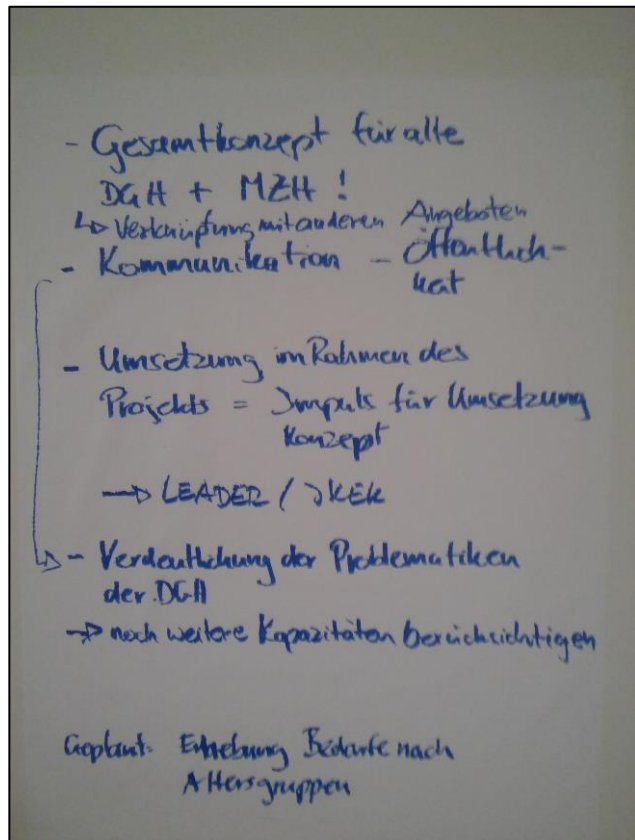 - Gesamtkonzept für alle
DGH + MZH !
↳ Verknüpfung mit anderen Angeboten
- Kommunikation - Öffentlich-
keit
- Umsetzung im Rahmen des
Projekts = Impuls für Umsetzung
Konzept
→ LEADER / IKEK
- Verdeutlichung der Problematiken
der DGH
→ noch weitere Kapazitäten berücksichtigen
Geplant: Erhebung Bedarfe nach
Altersgruppen